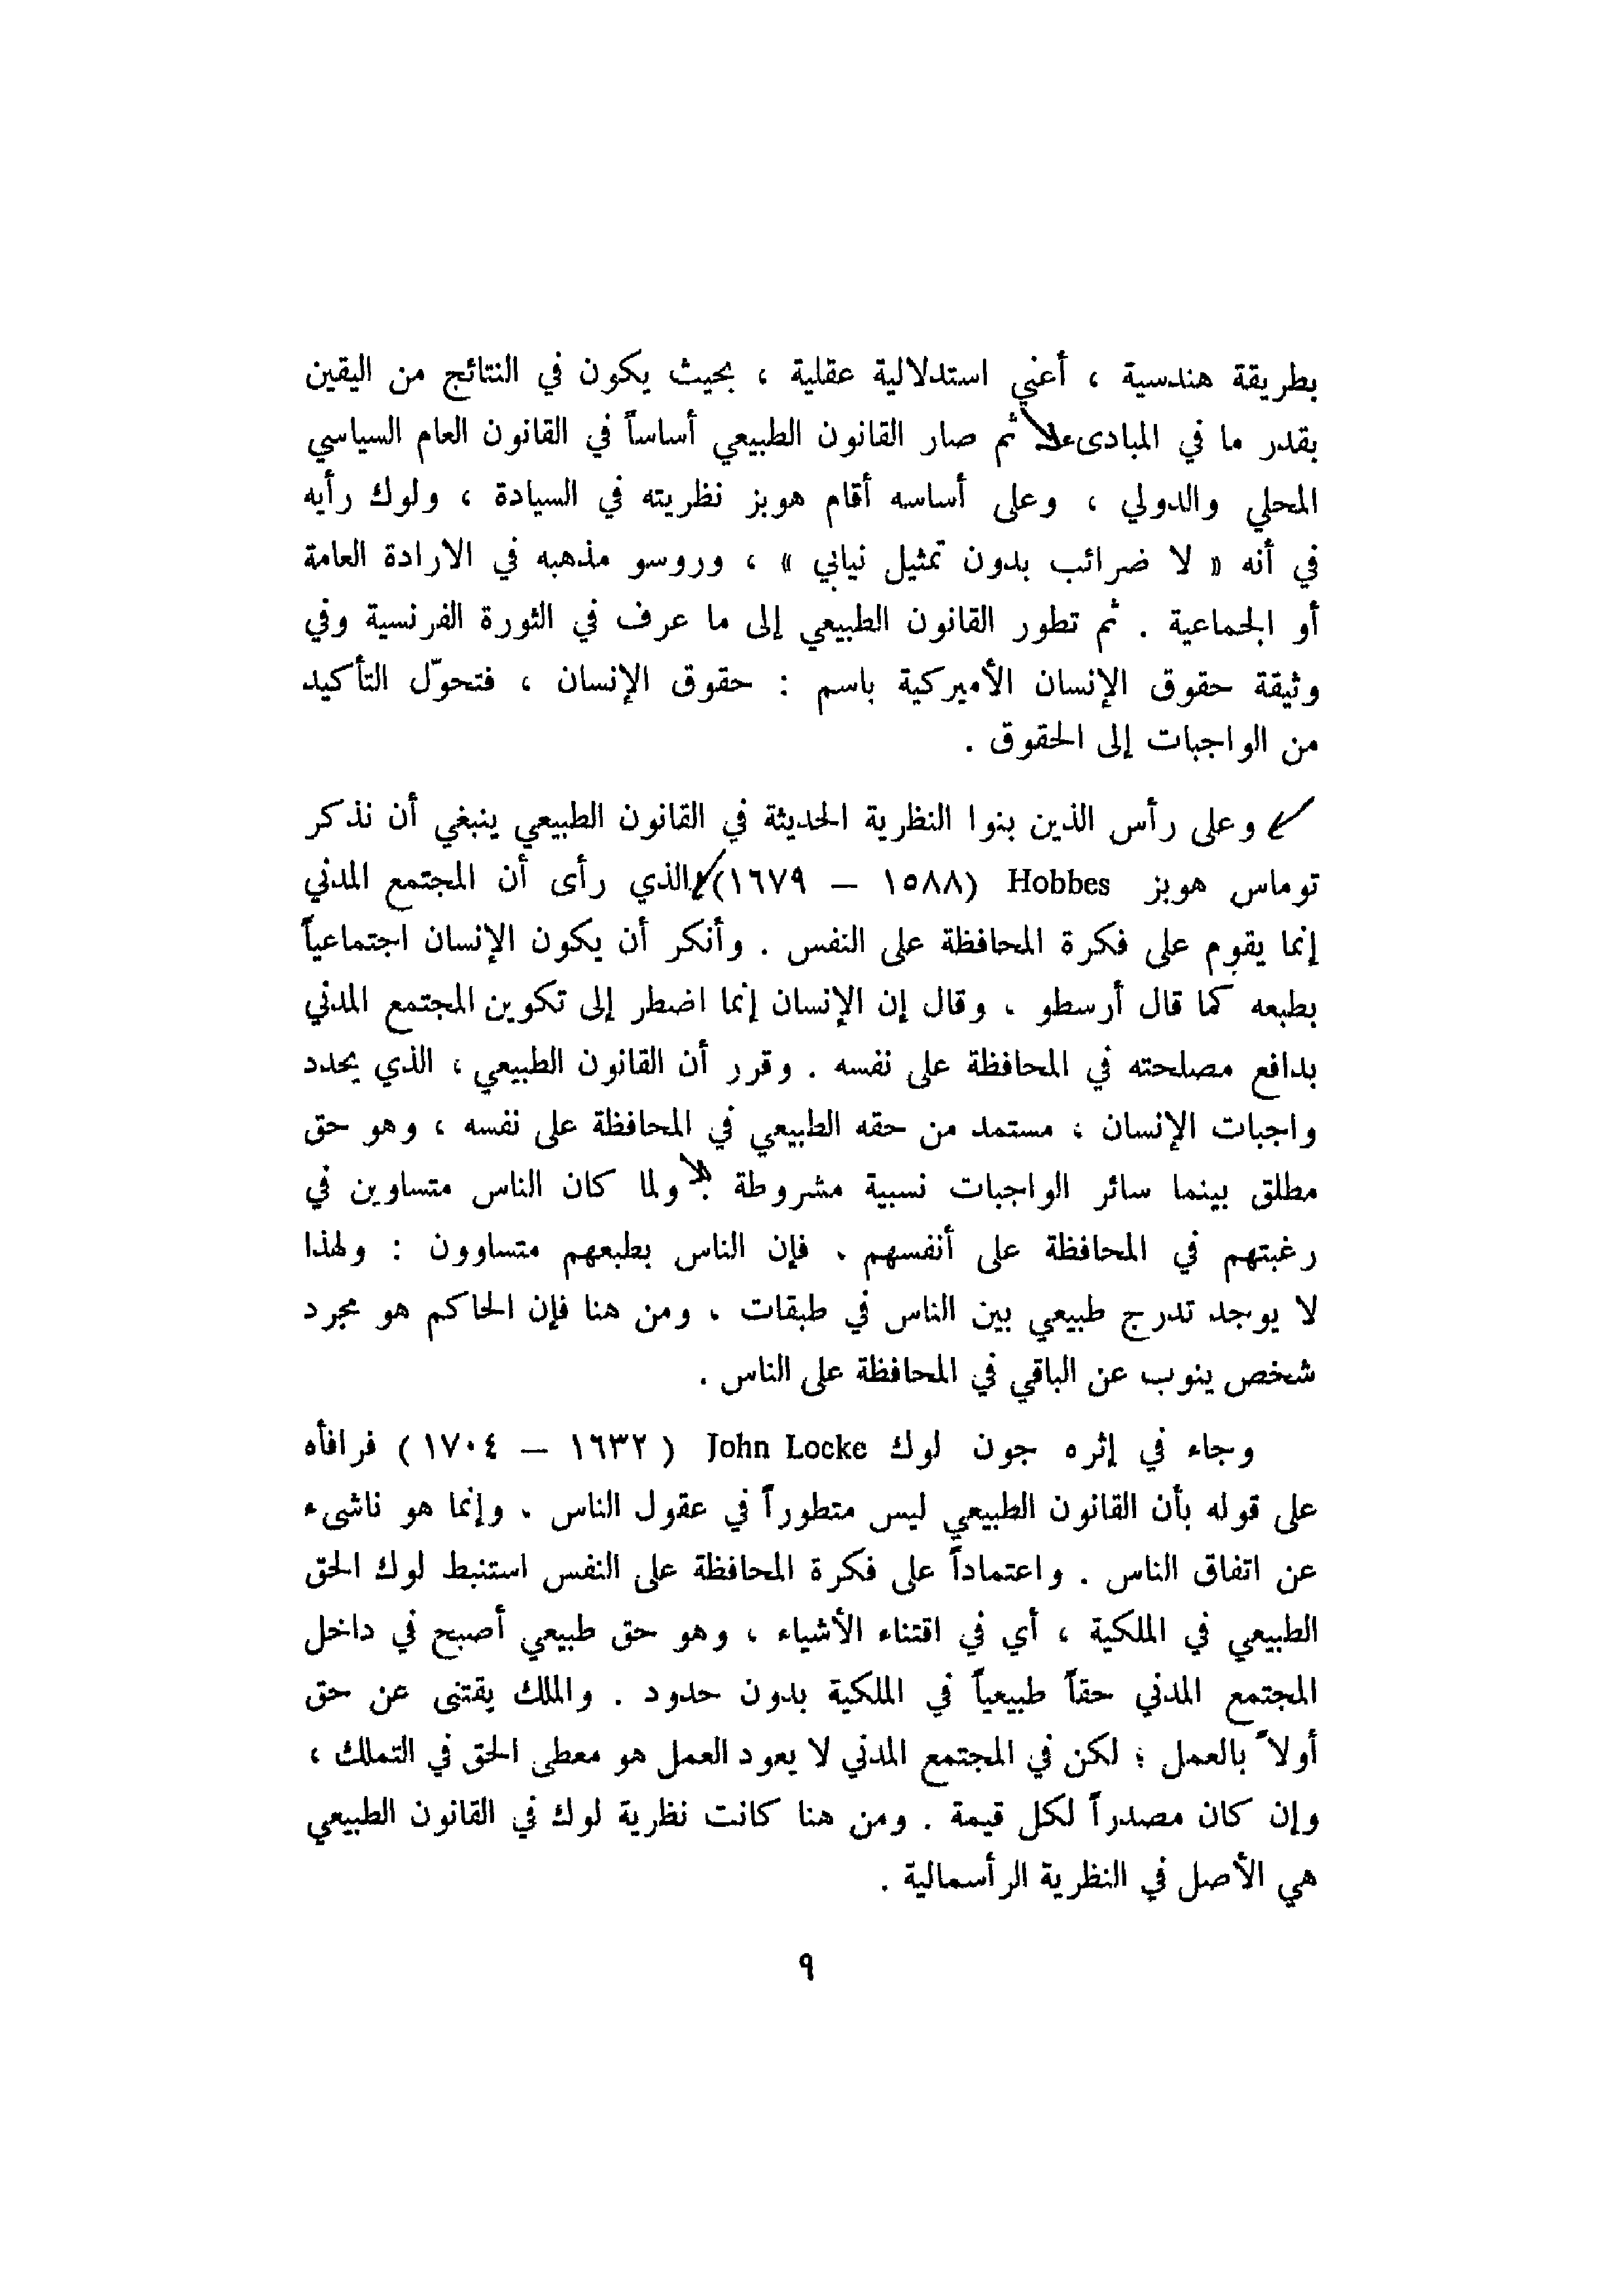 بطريقة هندسية ، أعني استدلالية عقلية ، بحيث يكون في النتائج من اليقين
بقدر ما في المبادىء ثم صار القانون الطبيعي أساساً في القانون العام السياسي
المحلي والدولي ، وعلى أساسه أقام هوبز نظريته في السيادة ، ولوك رأيه
في أنه « لا ضرائب بدون تمثيل نيابي » ، وروسو مذهبه في الارادة العامة
أو الجماعية . ثم تطور القانون الطبيعي إلى ما عرف في الثورة الفرنسية وفي
وثيقة حقوق الإنسان الأميركية باسم : حقوق الإنسان ، فتحوّل التأكيد
من الواجبات إلى الحقوق .
وعلى رأس الذين بنوا النظرية الحديثة في القانون الطبيعي ينبغي أن نذكر
توماس هوبز Hobbes (١٥٨٨ – ١٦٧٩) الذي رأى أن المجتمع المدني
إنما يقوم على فكرة المحافظة على النفس . وأنكر أن يكون الإنسان اجتماعياً
بطبعه كما قال أرسطو ، وقال إن الإنسان إنما اضطر إلى تكوين المجتمع المدني
بدافع مصلحته في المحافظة على نفسه . وقرر أن القانون الطبيعي ، الذي يحدد
واجبات الإنسان ، مستمد من حقه الطبيعي في المحافظة على نفسه ، وهو حق
مطلق بينما سائر الواجبات نسبية مشروطة . ولما كان الناس متساوين في
رغبتهم في المحافظة على أنفسهم ، فإن الناس بطبعهم متساوون : ولهذا
لا يوجد تدرج طبيعي بين الناس في طبقات ، ومن هنا فإن الحاكم هو مجرد
شخص ينوب عن الباقي في المحافظة على الناس .
وجاء في إثره جون لوك John Locke ( ١٦٣٢ – ١٧٠٤ ) فرافأه
على قوله بأن القانون الطبيعي ليس متطوراً في عقول الناس ، وإنما هو ناشىء
عن اتفاق الناس . واعتماداً على فكرة المحافظة على النفس استنبط لوك الحق
الطبيعي في الملكية ، أي في اقتناء الأشياء ، وهو حق طبيعي أصبح في داخل
المجتمع المدني حقاً طبيعياً في الملكية بدون حدود . والملك يقتنى عن حق
أولاً بالعمل ؛ لكن في المجتمع المدني لا يعود العمل هو معطى الحق في التملك ،
وإن كان مصدراً لكل قيمة . ومن هنا كانت نظرية لوك في القانون الطبيعي
هي الأصل في النظرية الرأسمالية .
٩